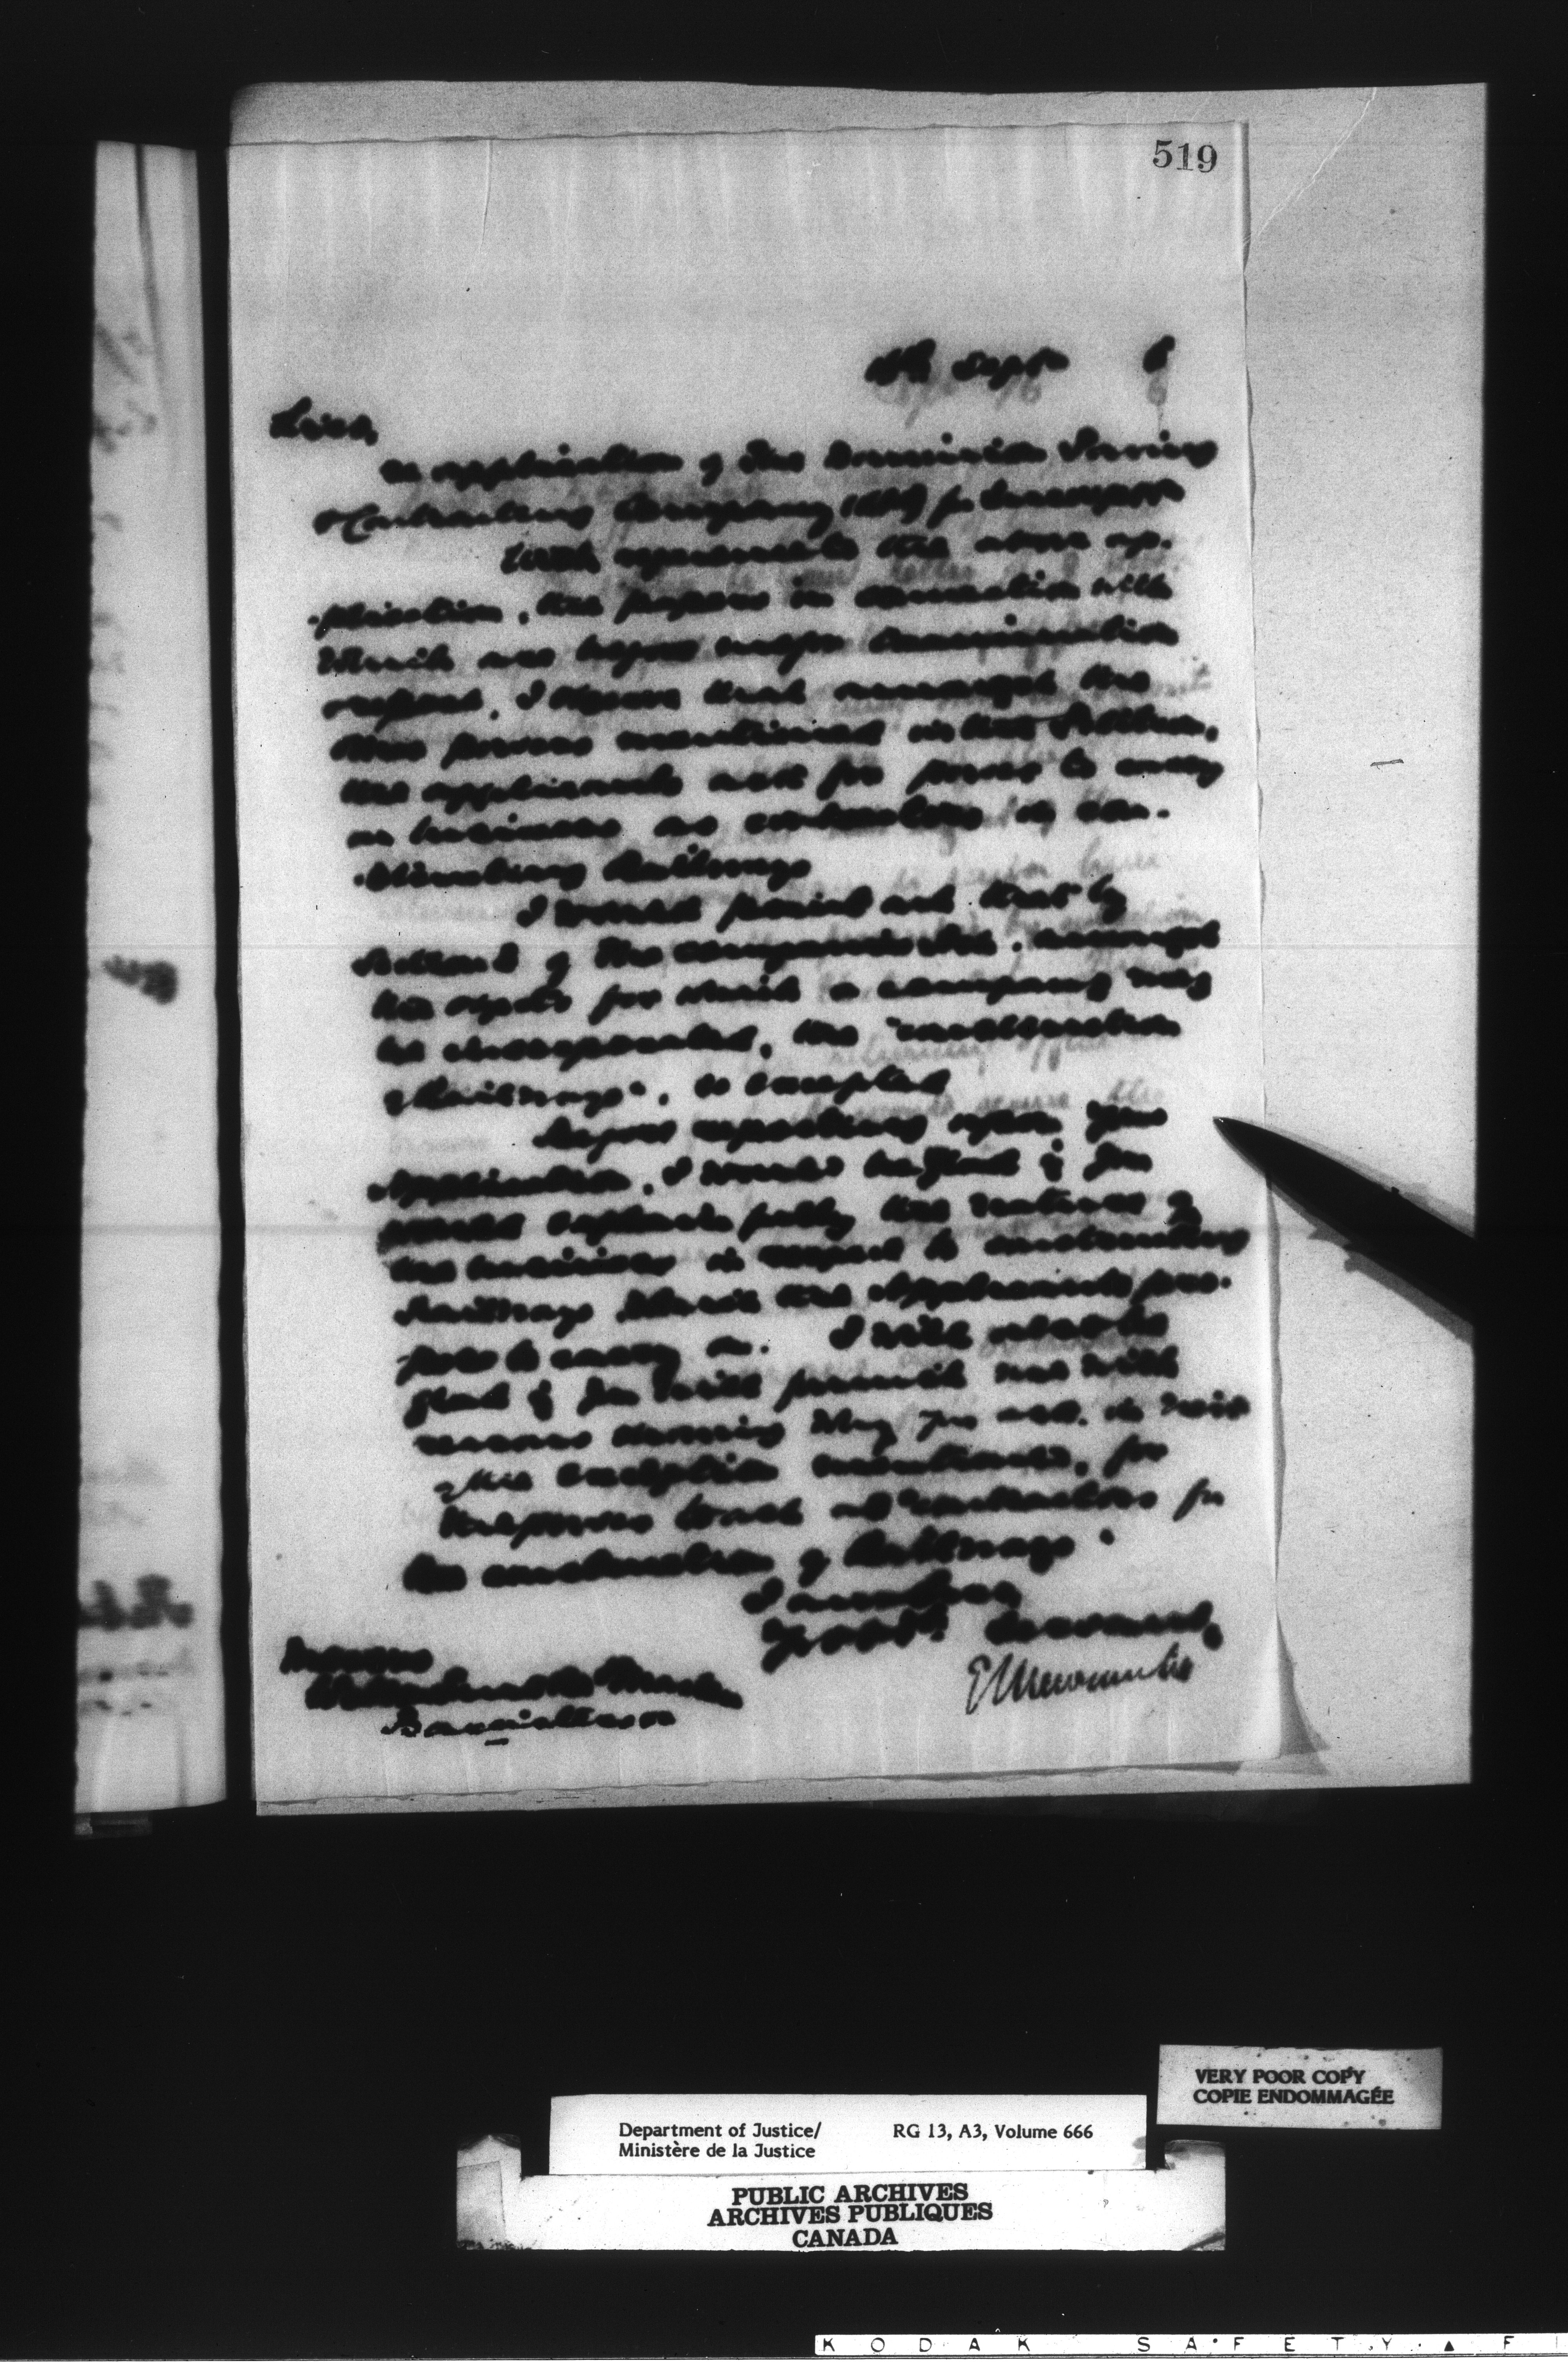 519
Sept 6
Sirs,
application of The Dominion Paving
Contracting Company for
With the above ap-
-plication, the papers in connection with
which are before me for
report, I that amongst the
powers mentioned in the Petition,
the applicants ask for power to carry
on business as contractors in con-
-structing Railways
I would point out that by
Section 5 of the Companies Act, amongst
the objects for which a company may
be incorporated, the "construction
of Railways", is excepted
Before reporting upon your
application, I would be glad if you
would explain fully the nature of
the business in respect to constructing
Railways which the Applicants pro-
pose to carry on. I will also be
glad if you will furnish me with
reasons showing why you ask, in view
of the exception mentioned, for
the power to act as "contractors for
the construction of Railways"
I am Sirs
Your obdt. Servant,
E L Newcombe
Messrs
Barristers
VERY POOR COPY
COPIE ENDOMMAGÉE
Department of Justice/ RG 13, A3, Volume 666
Ministère de la Justice
PUBLIC ARCHIVES
ARCHIVES PUBLIQUES
CANADA
KODAK SAFETY F